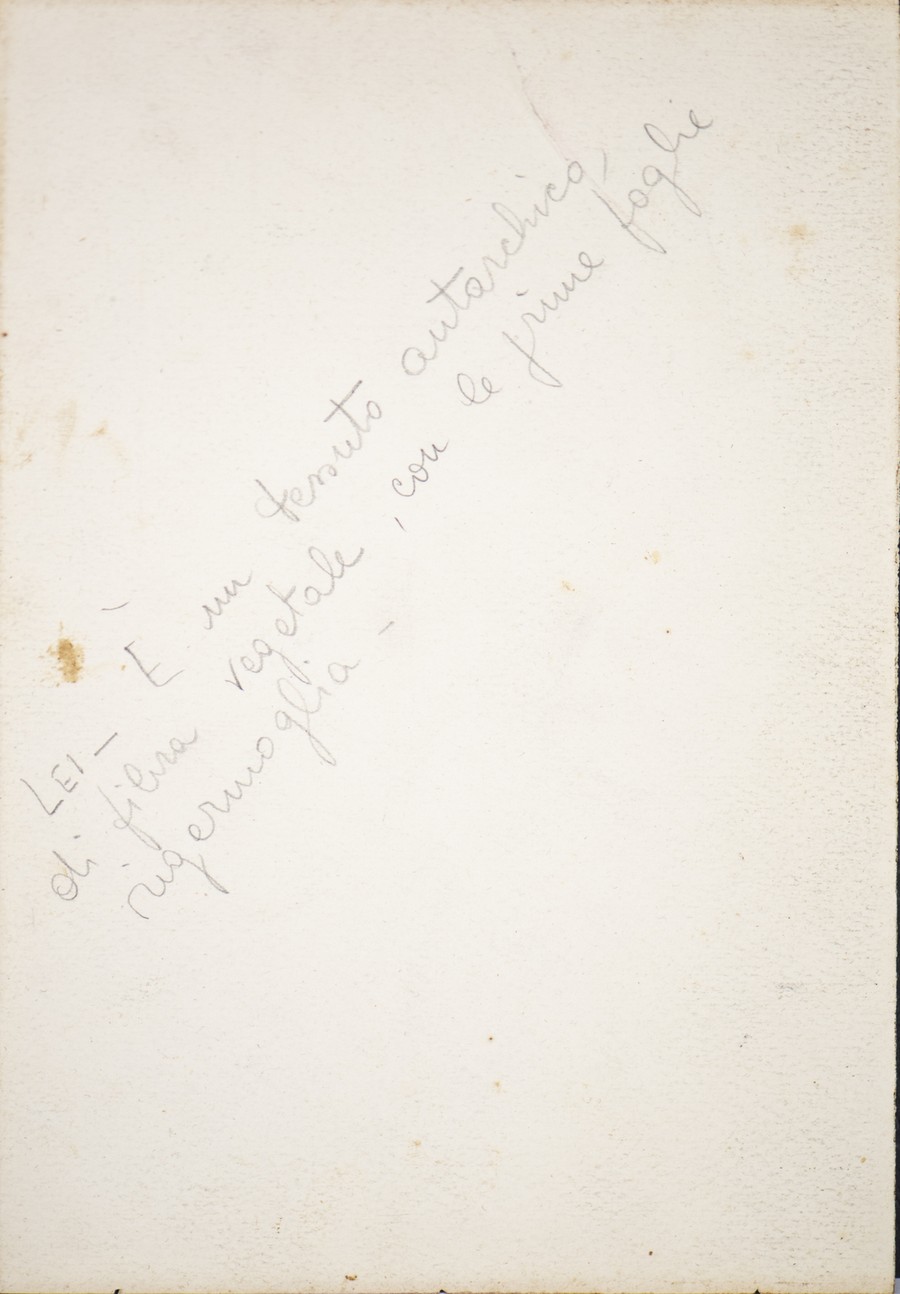 LEI - È un tessuto autarchico,
di fibra vegetale, con le prime foglie
rigermoglia -